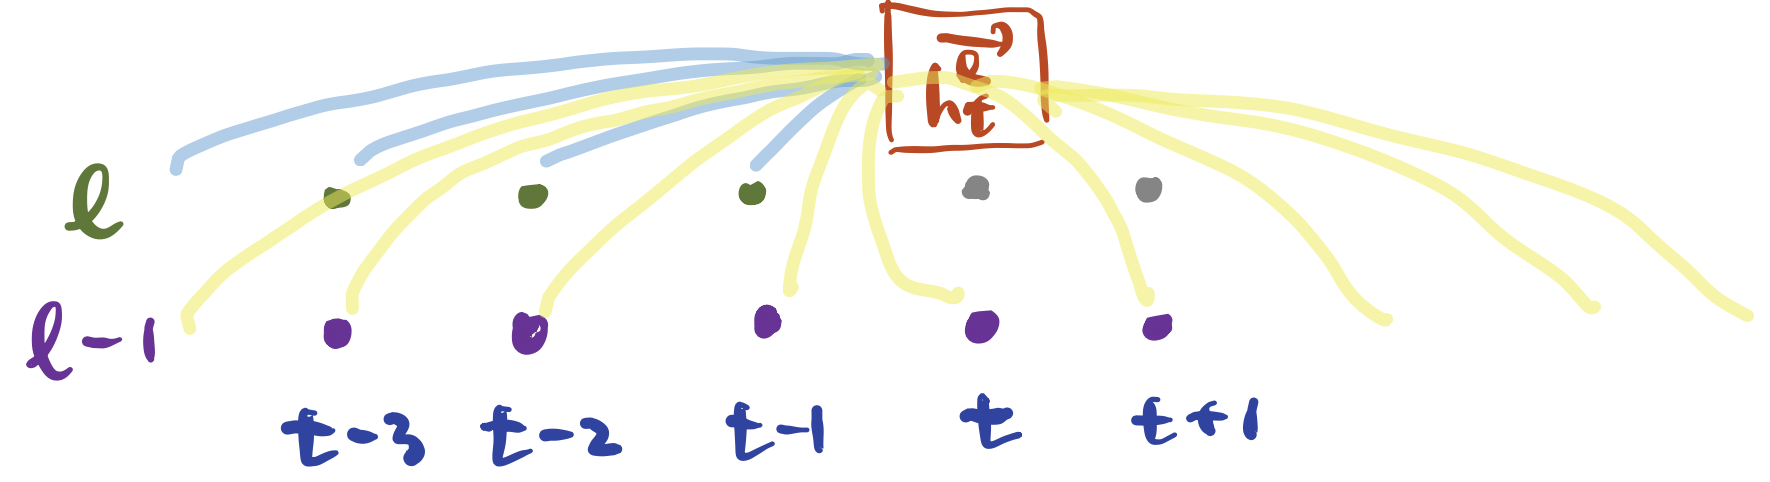 h_t^ℓ→
ℓ
ℓ-1
t-3 t-2 t-1 t t+1